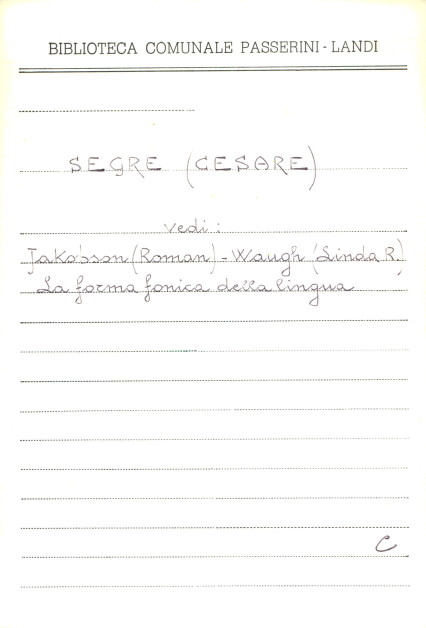 BIBLIOTECA COMUNALE PASSERINI - LANDI
SEGRE (CESARE)
vedi:
Jakobson (Roman) - Waugh (Linda R.)
La forma fonica della lingua
C